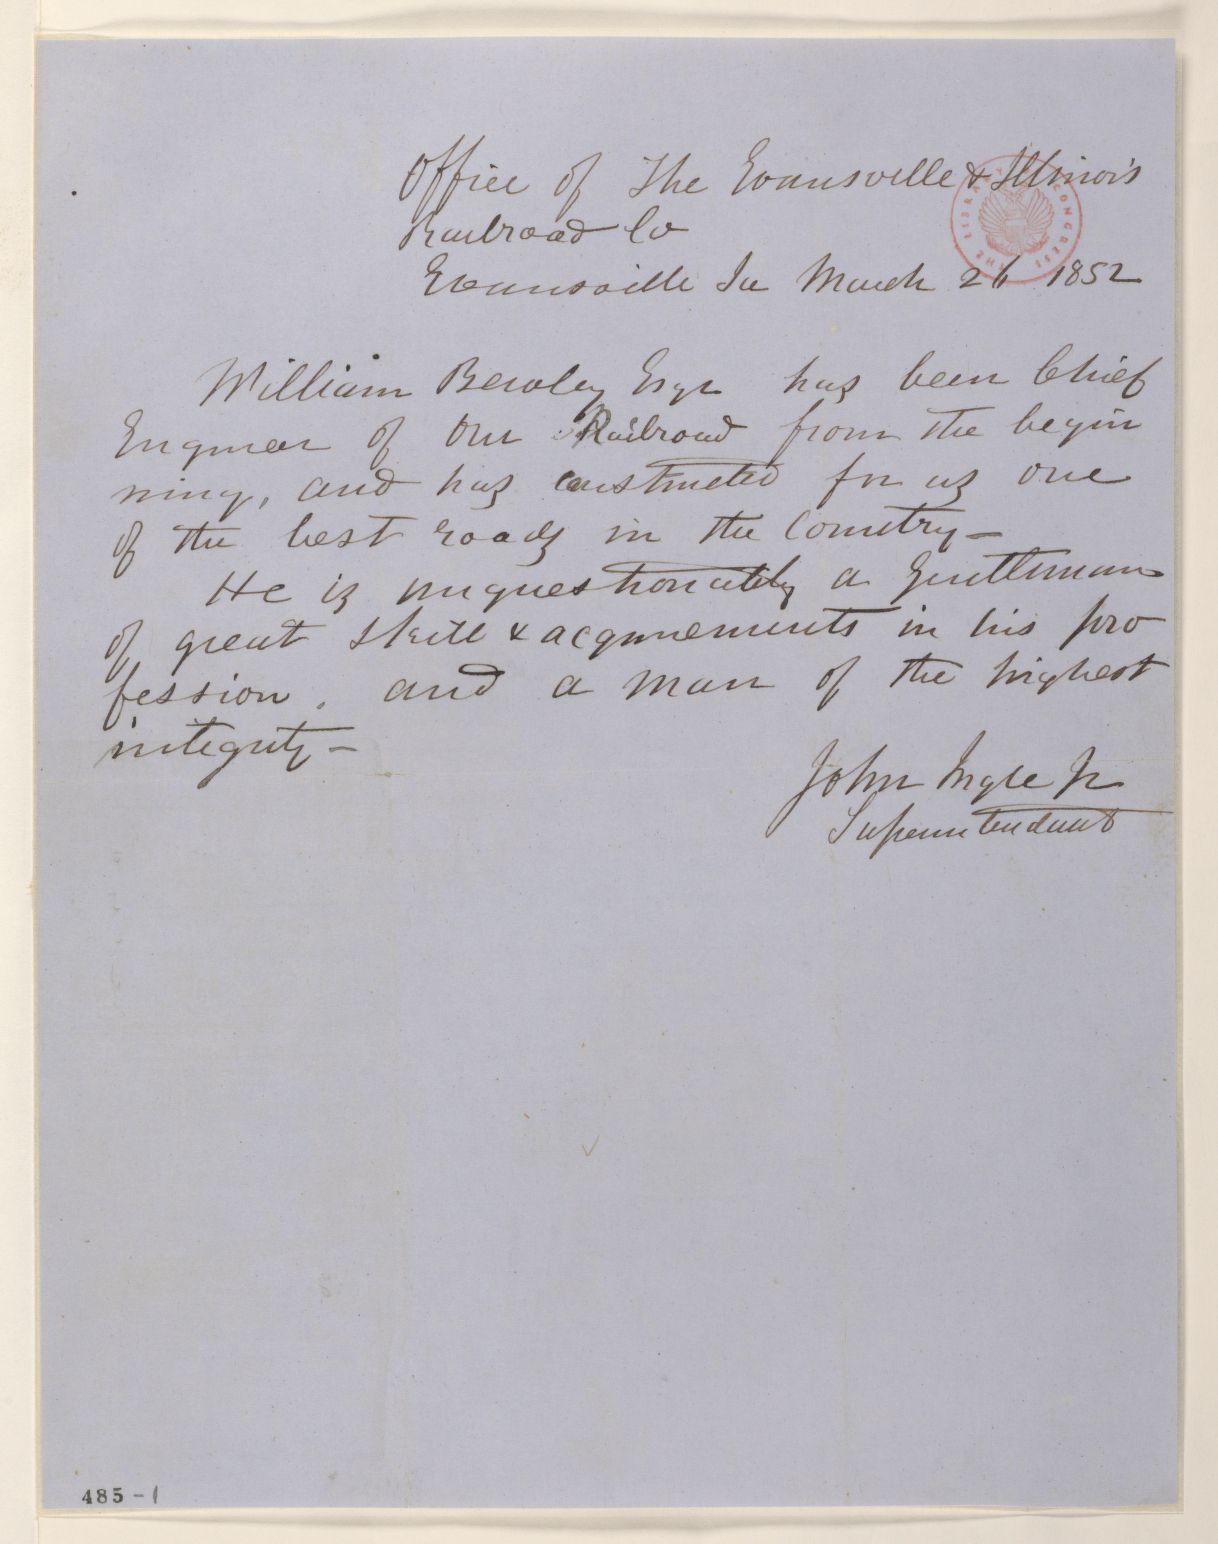 Office of The Evansville & Illinois
Railroad Co
Evansville Ia March 26 1852
THE LIBRARY OF CONGRESS
William Bewley Esqr has been Chief
Engineer of our Railroad from the begin
ning, and has constructed for us one
of the best roads in the Country—
He is unquestionably a Gentleman
of great skill & acquirements in his pro
fession, and a man of the highest
integrity—
John Ingle Jr
Superintendant
485-1